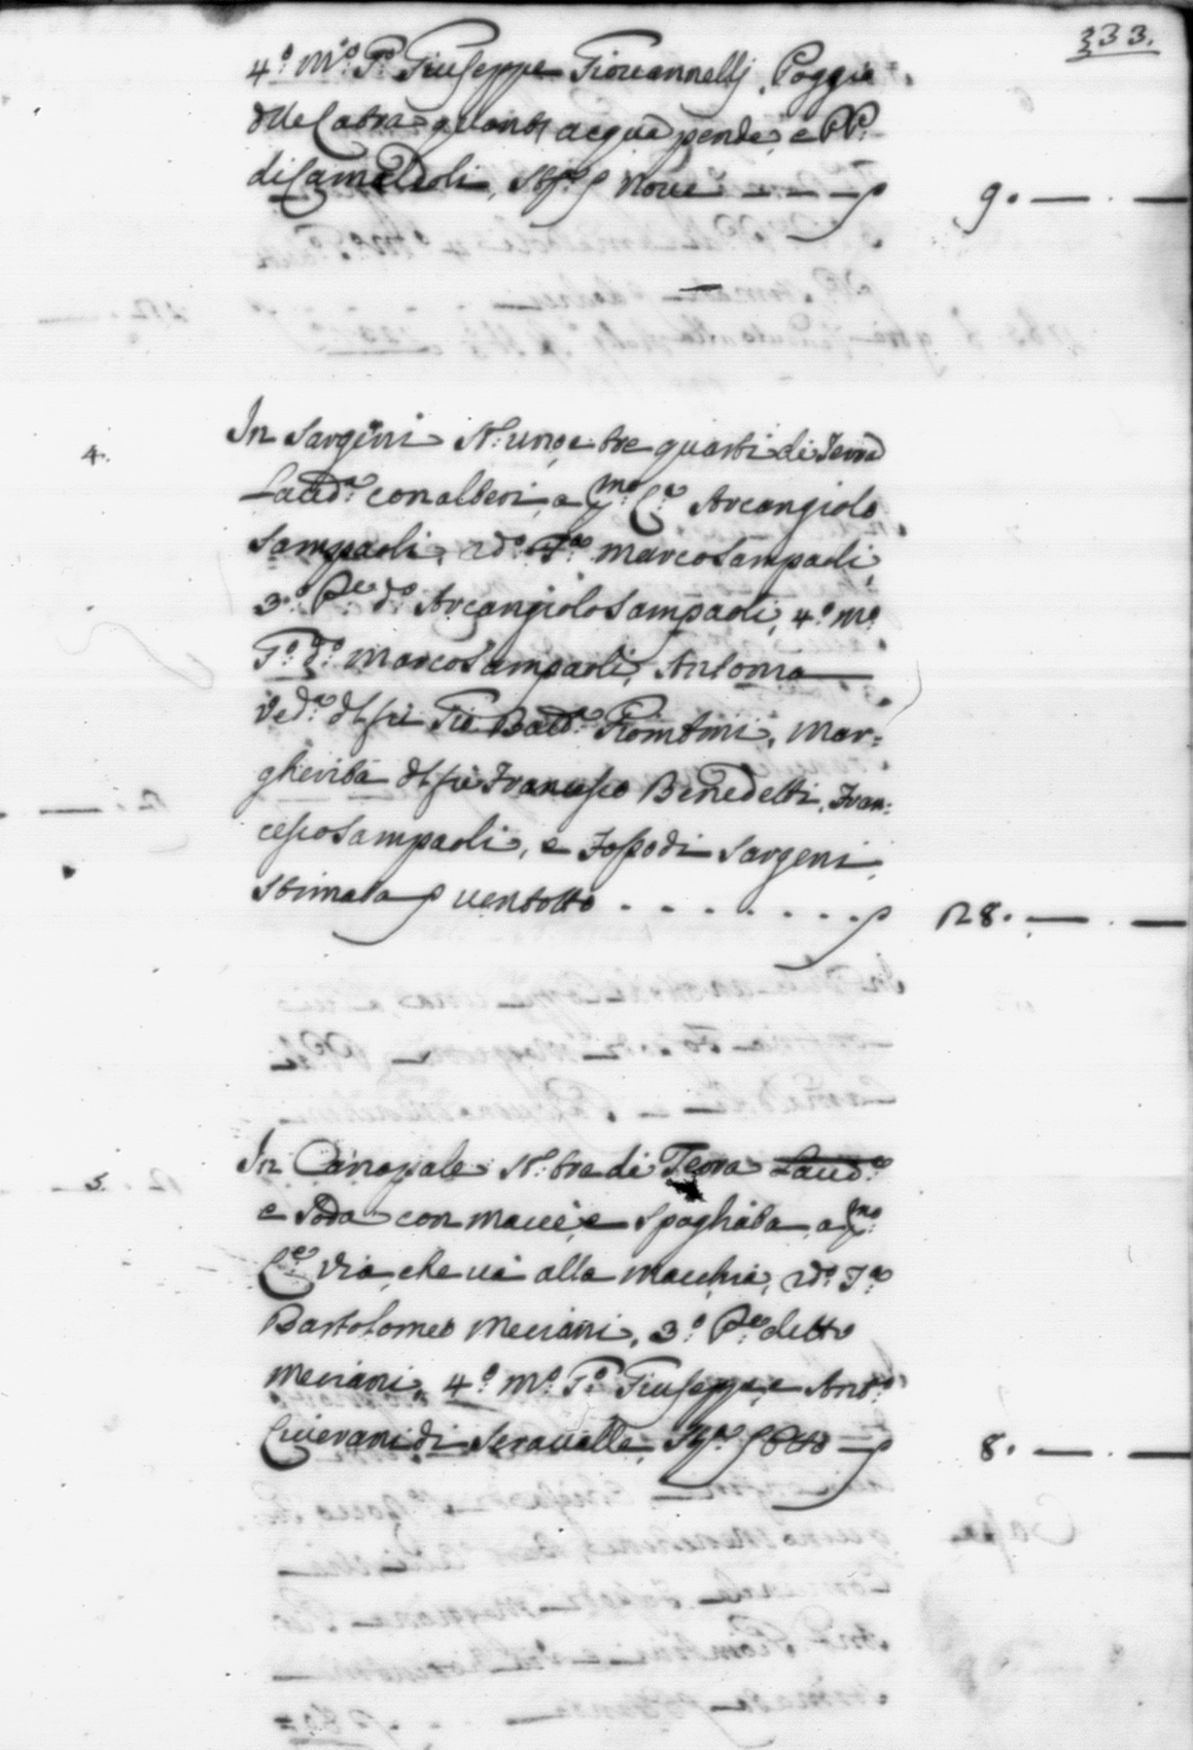 333.
4.º M.º P.º Giuseppe Giouannellj, Poggio
dlle Catra quanto acqua pende, e PP.
di Camaldoli, St.ª p noue — — — p 9. — . —
4. In Sargeni St: uno, e tre quarti di Terra
Laud.ª con alberi, a p.mo C.ª Arcangiolo
Sampaoli, 2.do T.ª Marco Sampaoli,
3.º P.e d.º Arcangiolo Sampaoli, 4.º M.º
P.º d.º Marco Sampaoli, Antonia
Ved.ª dl fù Gio Batt.ª Piombini, Mar=
gherita dl fù Francesco Benedetti, Fran=
cesco Sampaoli, e Fosso di Sargeni,
stimata p uentotto . . . . . . . p 28. — . —
5. In Canapale St: tre di Terra Laud.ª
e soda con macie, e spogliata, a p.mo
C.ª Via, che uà alla macchia, 2.do T.ª
Bartolomeo Meciani, 3.º P.e detto
Meciani, 4.º M.º P.º Giuseppe, e Ant.º
di Seraualle, St.ª p Otto — p 8. — . —